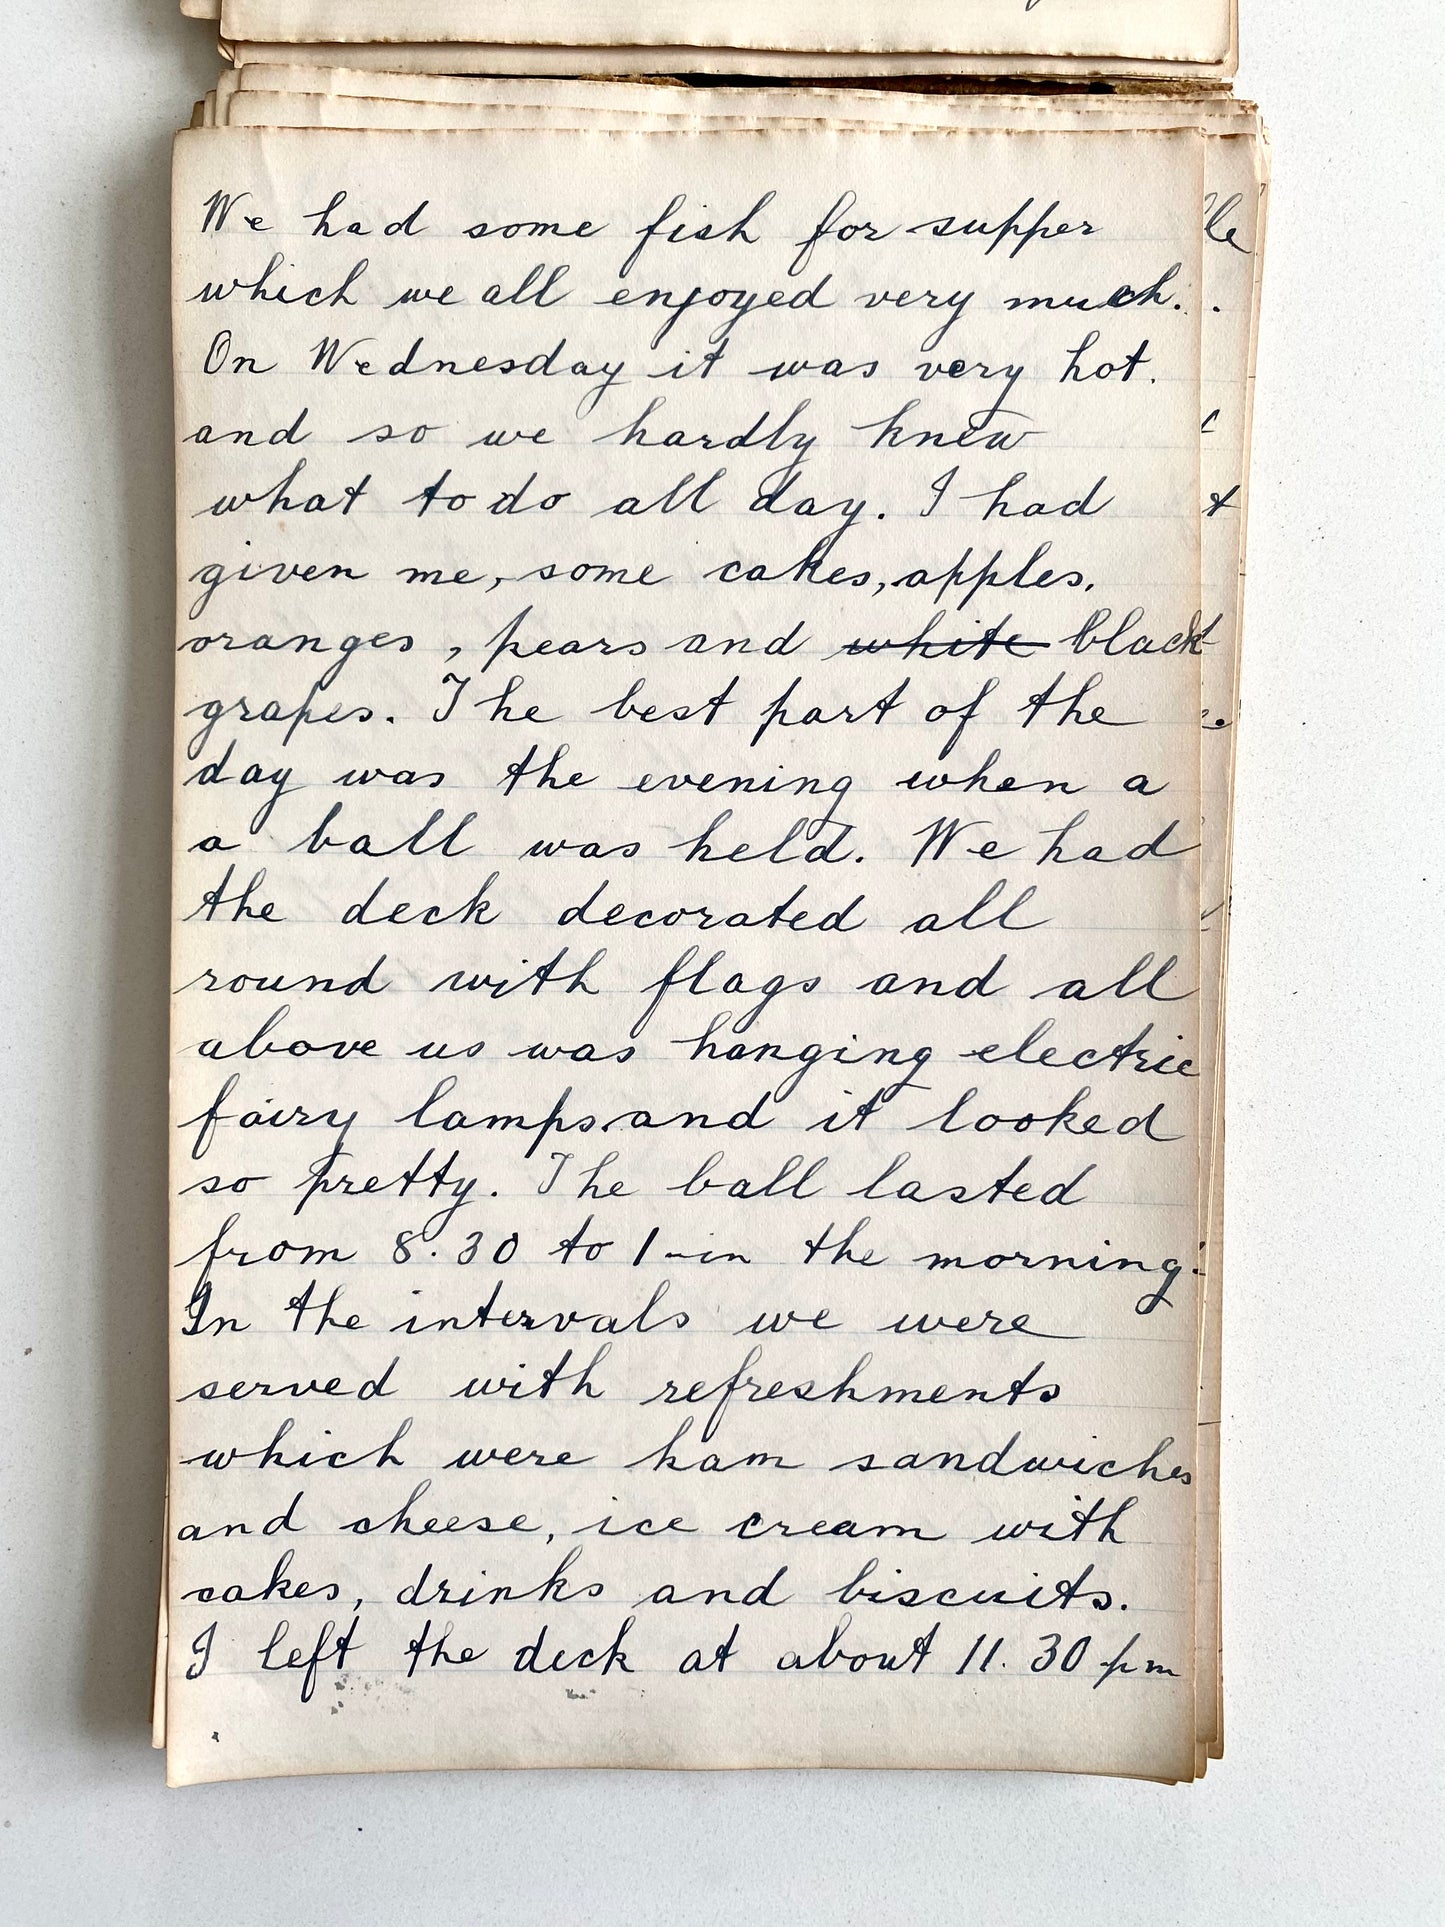 We had some fish for supper
which we all enjoyed very much.
On Wednesday it was very hot.
and so we hardly knew
what to do all day. I had
given me, some cakes, apples.
oranges, pears and ~~white~~ black
grapes. The best part of the
day was the evening when a
a ball was held. We had
the deck decorated all
round with flags and all
above us was hanging electric
fairy lamps and it looked
so pretty. The ball lasted
from 8.30 to 1 in the morning.
In the intervals we were
served with refreshments
which were ham sandwiches
and cheese, ice cream with
cakes, drinks and biscuits.
I left the deck at about 11.30 pm